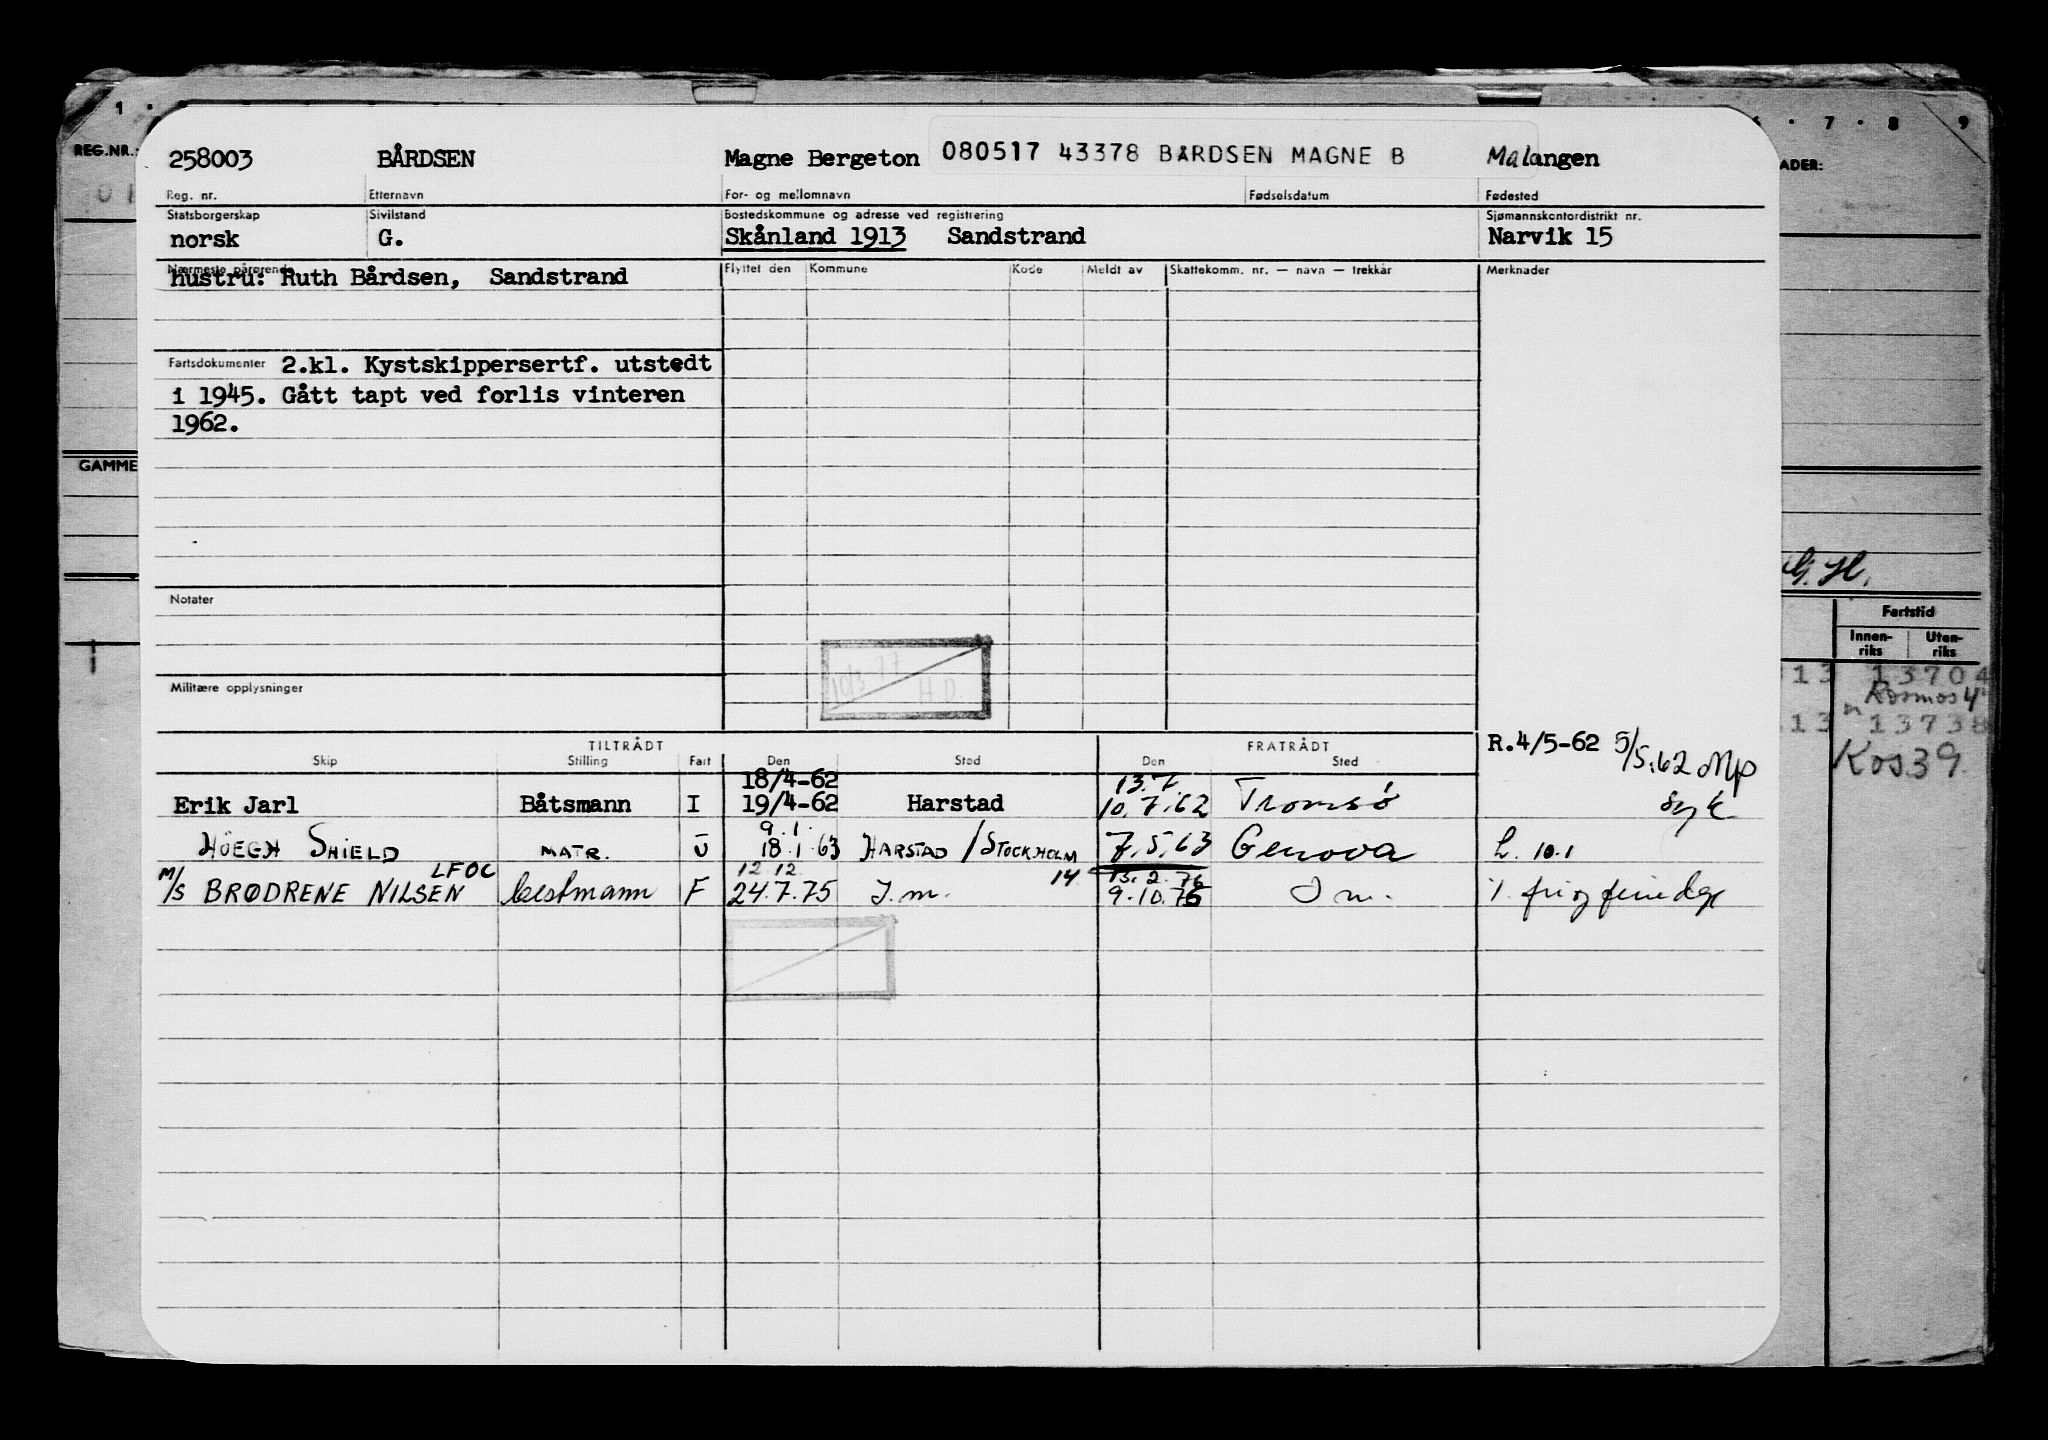 1
6 · 7 · 8 9
REG.NR.:
ADER:
258003 BÅRDSEN Magne Bergeton 080517 43378 BÅRDSEN MAGNE B Malangen
Reg. nr. Etternavn For- og mellomnavn Fødselsdatum Fødested
Statsborgerskap Sivilstand Bostedskommune og adresse ved registrering Sjømannskontordistrikt nr.
norsk G. Skånland 1913 Sandstrand Narvik 15
Nærmeste pårørende Flyttet den Kommune Kode Meldt av Skattekomm. nr. — navn — trekkår Merknader
hustru: Ruth Bårdsen, Sandstrand
Fartsdokumenter 2.kl. Kystskippersertf. utstedt
i 1945. Gått tapt ved forlis vinteren
1962.
GAMME
Notater
10/3-77
H.D.
Militære opplysninger
Fartstid
Innen-riks Uten-riks
13 13704
Kosmos 4
13 13738
Kos.39.
TILTRÅDT FRATRÅDT R.4/5-62 5/5.62 Mp
Skip Stilling Fart Den Sted Den Sted
18/4-62 13.7.
Erik Jarl Båtsmann I 19/4-62 Harstad 10.7.62 Tromsø syk
9.1.
HÖEGH SHIELD MATR. U 18.1.63 HARSTAD / STOCKHOLM 7.5.63 Genova L. 10.1
LFOC 12.12. 14 13.2.76
M/S BRØDRENE NILSEN bestmann F 24.7.75 I.m. 9.10.75 I m.